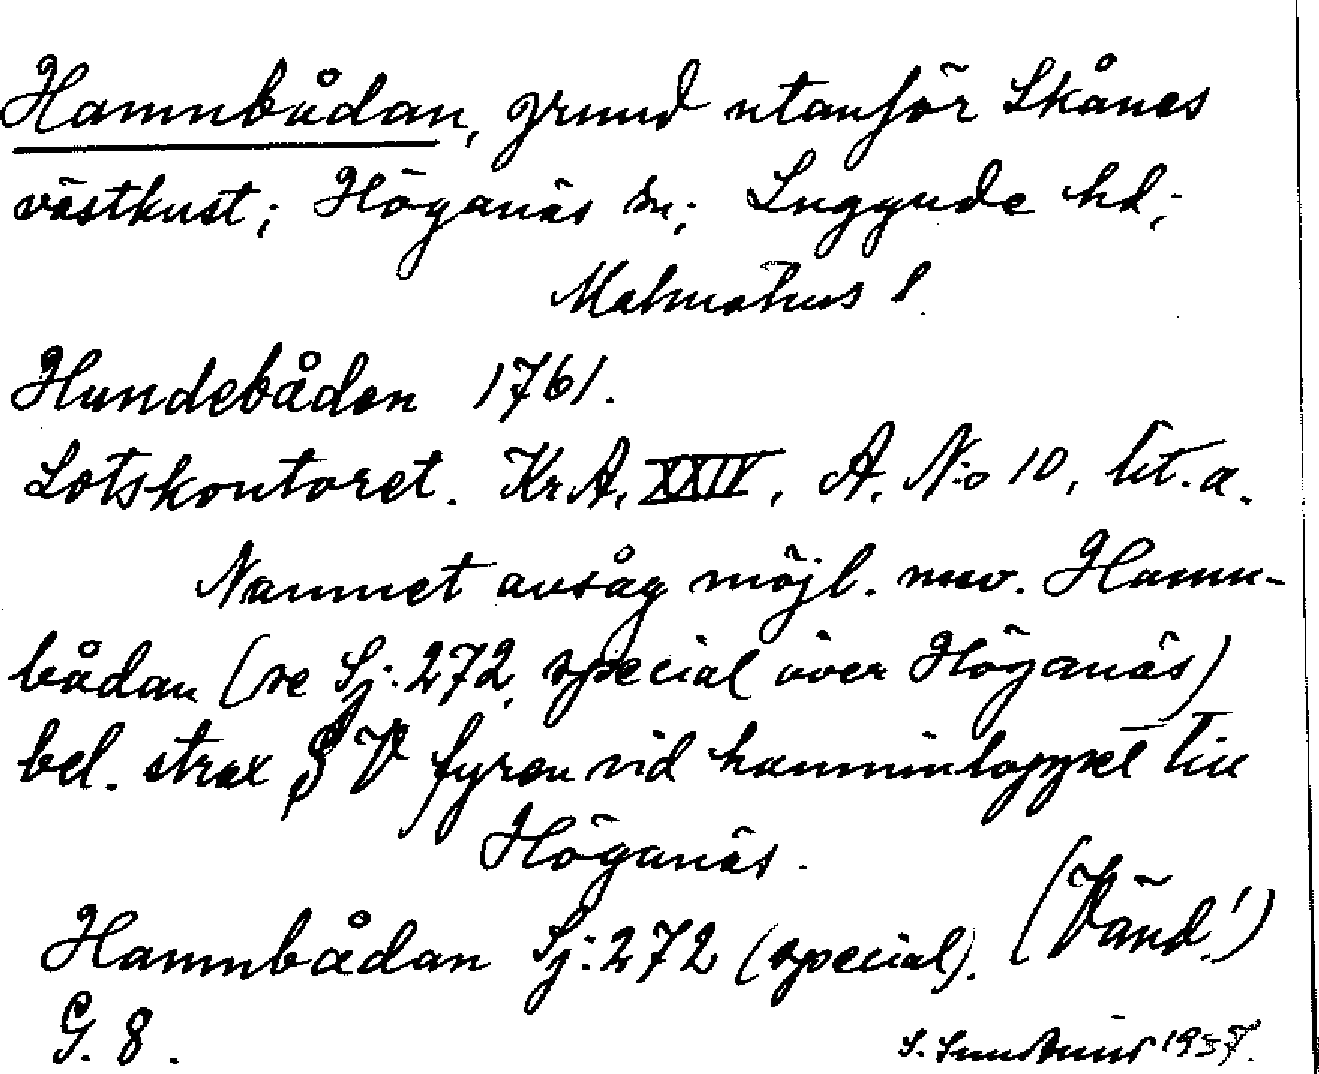 Hamnbådan, grund utanför Skånes
västkust; Höganäs sn; Luggude hd;
Malmöhus l.
Hundebåden 1761.
Lotskontoret. Kr.A, XXIV, A. No 10, lit. a.
Namnet avsåg möjl. nuv. Hamn-
bådan (se Sj: 272, special över Höganäs)
bel. strax S V fyren vid hamninloppet till
Höganäs.
Hamnbådan Sj: 272 (special). (Vänd!)
G. 8.
S. 1937.